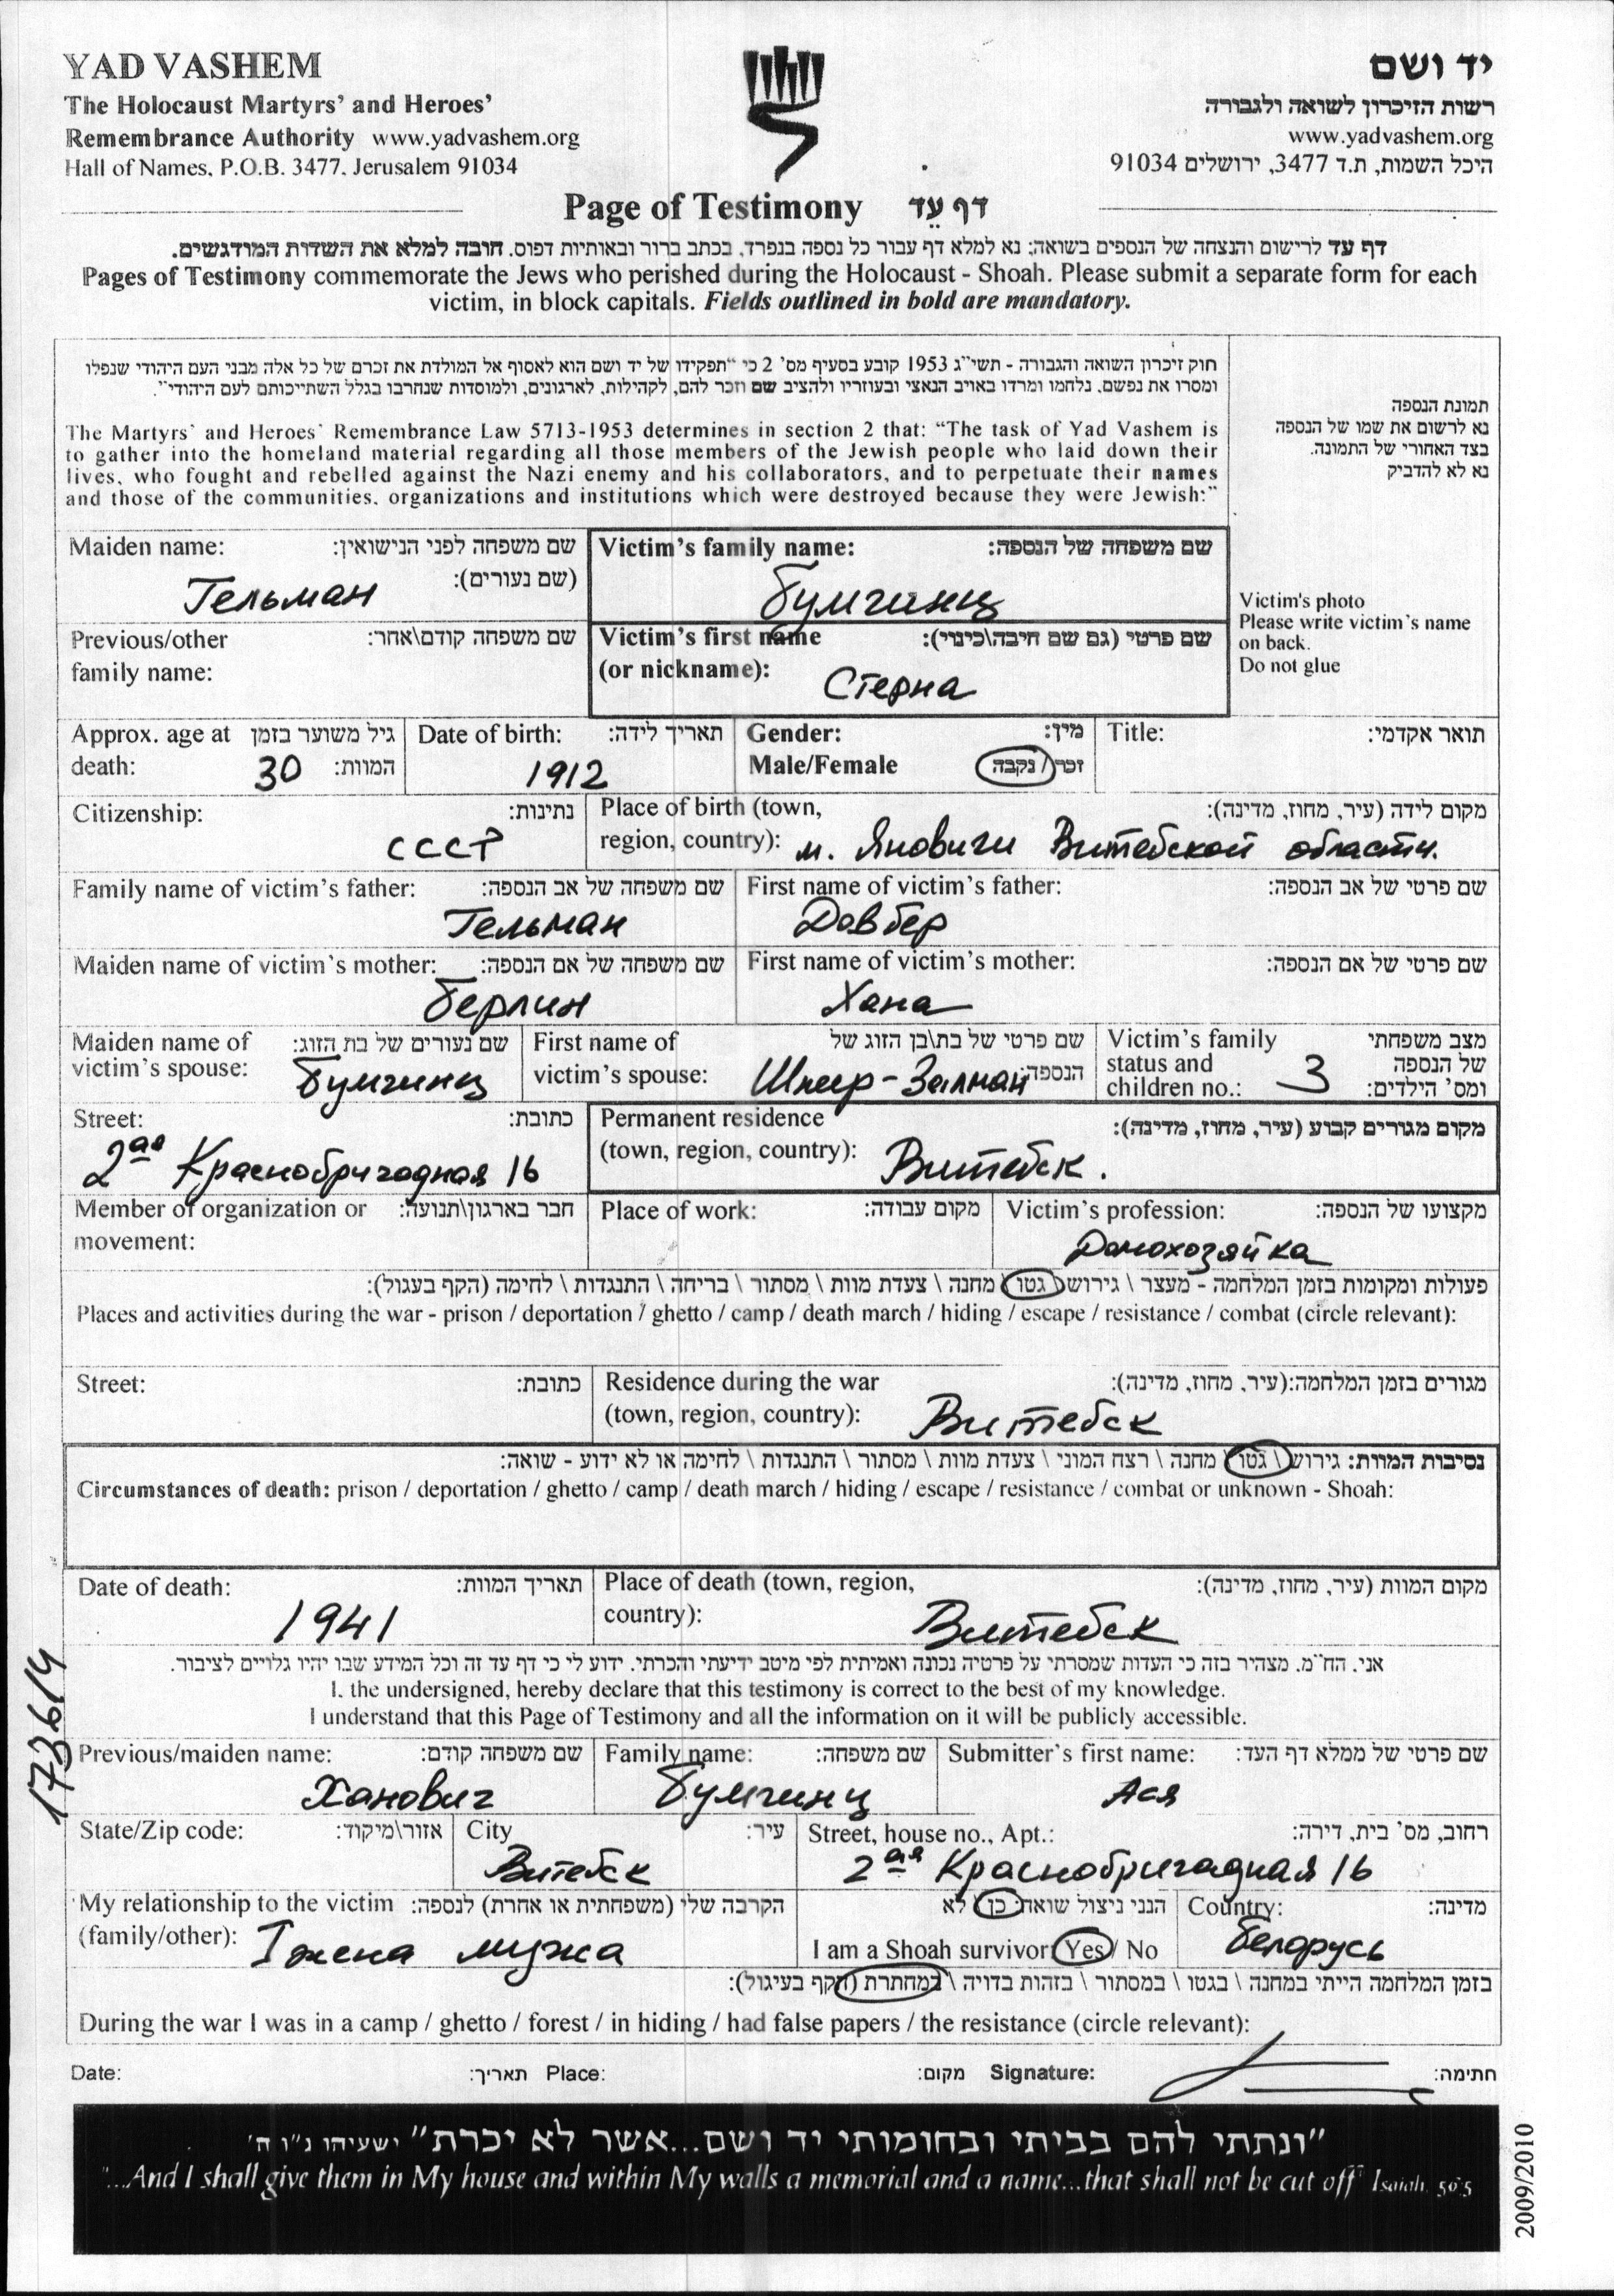 YAD VASHEM
The Holocaust Martyrs' and Heroes'
Remembrance Authority www.yadvashem.org
Hall of Names, P.O.B. 3477, Jerusalem 91034
יד ושם
רשות הזיכרון לשואה ולגבורה
www.yadvashem.org
היכל השמות, ת.ד 3477, ירושלים 91034
Page of Testimony דף עֵד
דף עד לרישום והנצחה של הנספים בשואה; נא למלא דף עבור כל נספה בנפרד, בכתב ברור ובאותיות דפוס. חובה למלא את השדות המודגשים.
Pages of Testimony commemorate the Jews who perished during the Holocaust - Shoah. Please submit a separate form for each
victim, in block capitals. Fields outlined in bold are mandatory.
חוק זיכרון השואה והגבורה - תשי"ג 1953 קובע בסעיף מס' 2 כי "תפקידו של יד ושם הוא לאסוף אל המולדת את זכרם של כל אלה מבני העם היהודי שנפלו
ומסרו את נפשם, נלחמו ומרדו באויב הנאצי ובעוזריו ולהציב שם וזכר להם, לקהילות, לארגונים, ולמוסדות שנחרבו בגלל השתייכותם לעם היהודי".
The Martyrs' and Heroes' Remembrance Law 5713-1953 determines in section 2 that: "The task of Yad Vashem is
to gather into the homeland material regarding all those members of the Jewish people who laid down their
lives, who fought and rebelled against the Nazi enemy and his collaborators, and to perpetuate their names
and those of the communities, organizations and institutions which were destroyed because they were Jewish:"
תמונת הנספה
נא לרשום את שמו של הנספה
בצד האחורי של התמונה.
נא לא להדביק
Victim's photo
Please write victim's name
on back.
Do not glue
Maiden name: שם משפחה לפני הנישואין:
(שם נעורים):
Гельман
Victim's family name: שם משפחה של הנספה:
Бумгинц
Previous/other שם משפחה קודם\אחר:
family name:
Victim's first name שם פרטי (גם שם חיבה\כינוי):
(or nickname):
Стерна
Approx. age at גיל משוער בזמן
death: 30 המוות:
Date of birth: תאריך לידה:
1912
Gender: מין:
Male/Female זכר / נקבה
Title: תואר אקדמי:
Citizenship: נתינות:
СССР
Place of birth (town, מקום לידה (עיר, מחוז, מדינה):
region, country): м. Яновичи Витебской области.
Family name of victim's father: שם משפחה של אב הנספה:
Гельман
First name of victim's father: שם פרטי של אב הנספה:
Довбер
Maiden name of victim's mother: שם משפחה של אם הנספה:
Берлин
First name of victim's mother: שם פרטי של אם הנספה:
Хана
Maiden name of שם נעורים של בת הזוג:
victim's spouse: Бумгинц
First name of שם פרטי של בת\בן הזוג של
victim's spouse: Шнеер-Залман הנספה:
Victim's family מצב משפחתי
status and 3 של הנספה
children no.: ומס' הילדים:
Street: כתובת:
2ая Краснобригадная 16
Permanent residence מקום מגורים קבוע (עיר, מחוז, מדינה):
(town, region, country): Витебск.
Member of organization or חבר בארגון\תנועה:
movement:
Place of work: מקום עבודה:
Victim's profession: מקצועו של הנספה:
Домохозяйка
פעולות ומקומות בזמן המלחמה - מעצר \ גירוש \ גטו \ מחנה \ צעדת מוות \ מסתור \ בריחה \ התנגדות \ לחימה (הקף בעגול):
Places and activities during the war - prison / deportation / ghetto / camp / death march / hiding / escape / resistance / combat (circle relevant):
Street: כתובת:
Residence during the war מגורים בזמן המלחמה:(עיר, מחוז, מדינה):
(town, region, country): Витебск
נסיבות המוות: גירוש \ גטו \ מחנה \ רצח המוני \ צעדת מוות \ מסתור \ התנגדות \ לחימה או לא ידוע - שואה:
Circumstances of death: prison / deportation / ghetto / camp / death march / hiding / escape / resistance / combat or unknown - Shoah:
Date of death: תאריך המוות:
1941
Place of death (town, region, מקום המוות (עיר, מחוז, מדינה):
country): Витебск
אני, הח"מ, מצהיר בזה כי העדות שמסרתי על פרטיה נכונה ואמיתית לפי מיטב ידיעתי והכרתי. ידוע לי כי דף עד זה וכל המידע שבו יהיו גלויים לציבור.
I, the undersigned, hereby declare that this testimony is correct to the best of my knowledge.
I understand that this Page of Testimony and all the information on it will be publicly accessible.
173614
Previous/maiden name: שם משפחה קודם:
Ханович
Family name: שם משפחה:
Бумгинц
Submitter's first name: שם פרטי של ממלא דף העד:
Ася
State/Zip code: אזור\מיקוד:
City עיר:
Витебск
Street, house no., Apt.: רחוב, מס' בית, דירה:
2ая Краснобригадная 16
My relationship to the victim הקרבה שלי (משפחתית או אחרת) לנספה:
(family/other): I жена мужа
הנני ניצול שואה: כן \ לא
I am a Shoah survivor: Yes / No
Country: מדינה:
Беларусь
בזמן המלחמה הייתי במחנה \ בגטו \ במסתור \ בזהות בדויה \ במחתרת (הקף בעיגול):
During the war I was in a camp / ghetto / forest / in hiding / had false papers / the resistance (circle relevant):
Date: תאריך: Place: מקום: Signature: חתימה:
"ונתתי להם בביתי ובחומותי יד ושם...אשר לא יכרת" ישעיהו נ"ו ה'
"...And I shall give them in My house and within My walls a memorial and a name...that shall not be cut off" Isaiah, 56:5
2009/2010